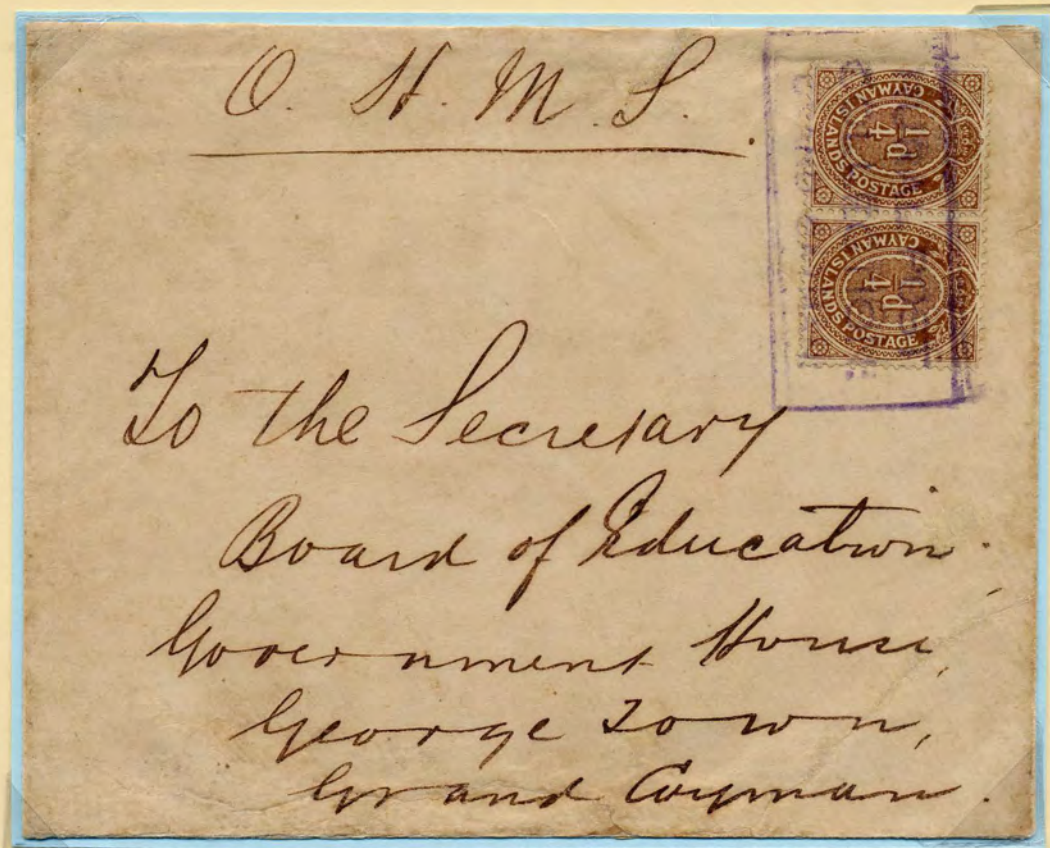 O. H. M. S.
CAYMAN ISLANDS POSTAGE
1/4 d
CAYMAN ISLANDS POSTAGE
1/4 d
To the Secretary
Board of Education.
Government House,
George Town,
Grand Cayman.